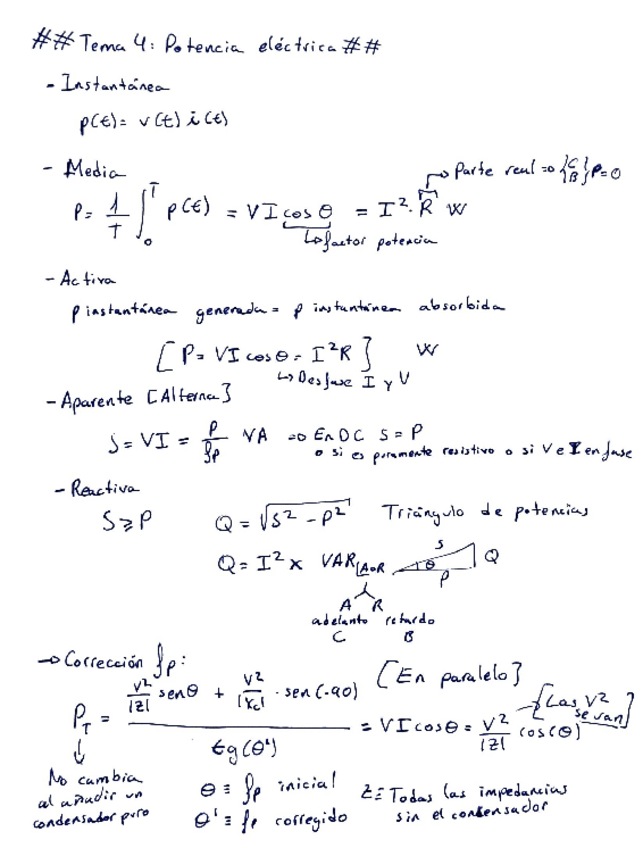 ## Tema 4: Potencia eléctrica ##
- Instantánea
p(t)= v(t) i(t)
- Media
Parte real => {C B} P=0
P= 1/T ∫₀ᵀ p(t) = VI cos θ = I²·R W
↳ factor potencia
- Activa
p instantánea generada = p instantánea absorbida
[P= VI cos θ = I²R] W
↳ Desfase I y V
- Aparente [Alterna]
S=VI = P/fp VA => En DC S=P
o si es puramente resistivo o si V e I en fase
- Reactiva
S≥P Q = √S²-P² Triángulo de potencias
Q = I² x VAR [A o R S θ P Q
A R
adelanto retardo
C B
→ Corrección fp:
[En paralelo]
P_T = (V²/|Z| senθ + V²/|Xc| · sen(-90)) / tg(θ') = VI cosθ = V²/|Z| cos(θ) → [Las V² se van]
↓
No cambia
al añadir un
condensador puro
θ ≡ fp inicial
θ' ≡ fp corregido
Z ≡ Todas las impedancias
sin el condensador